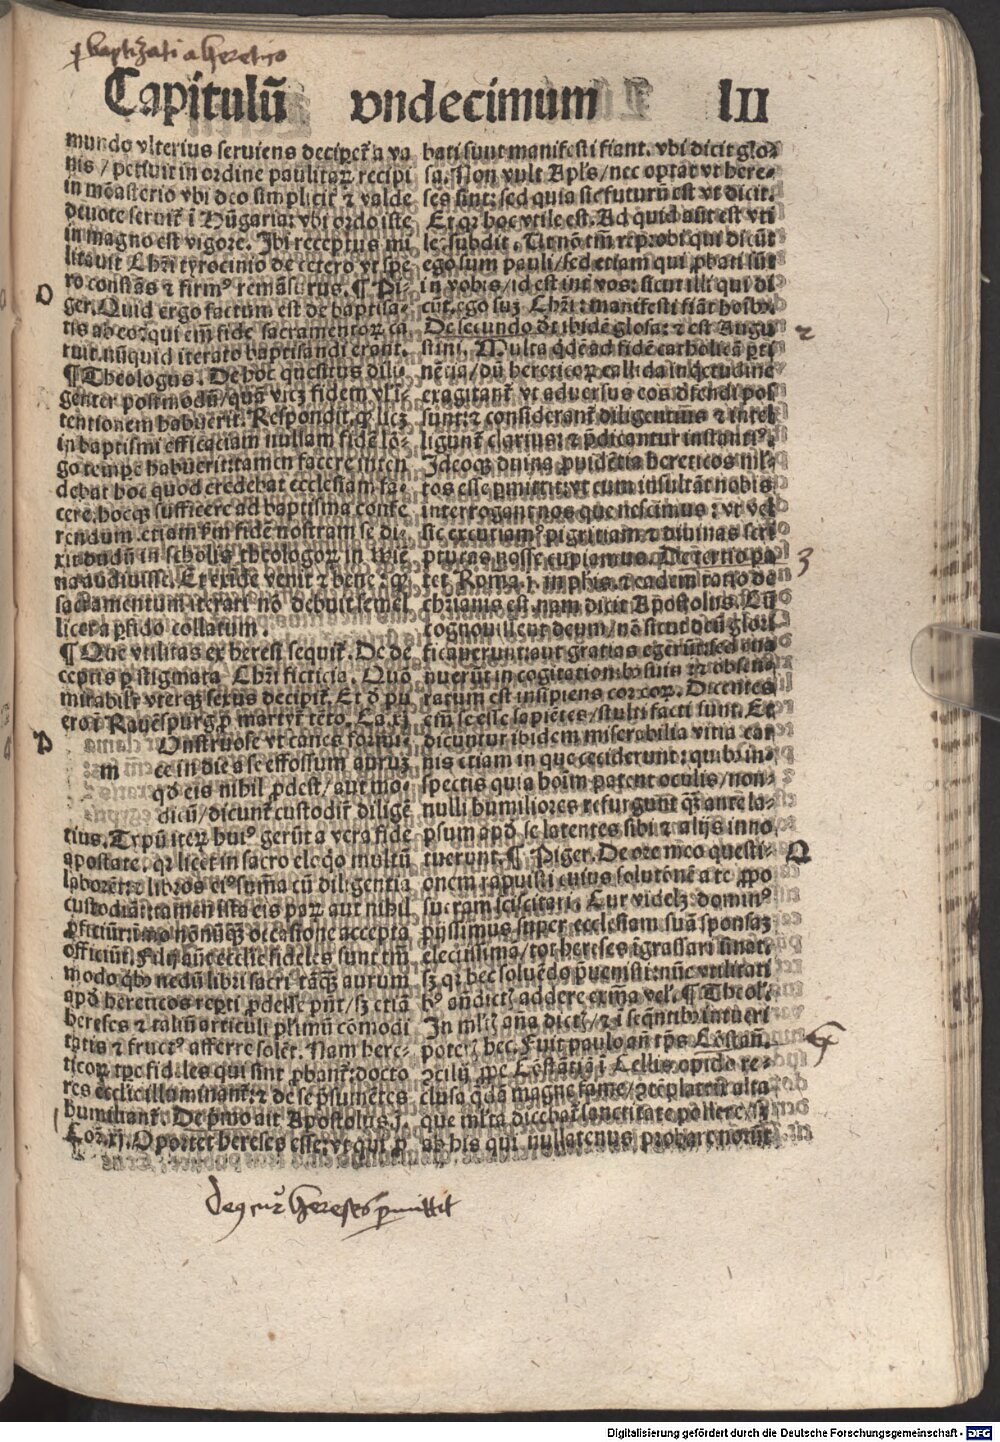 baptizati a heretico
Capitulū vndecimum LII
mundo vlterius seruiens decipet a va
nis / petiuit in ordine paulitaꝝ recipi
in mōasterio vbi deo simplicit̄ ⁊ valde
deuote seruit̄ ī Vn̄garia: vbi ordo iste
in magno est vigore. Ibi receptus mi
litauit Chr̄i tyrocinio de cetero vt spe
ro constās ⁊ firmꝰ remāsurus. ¶ Pi-
O
ger. Quid ergo factum est de baptisa-
tis ab eo: qui em̄ fide sacramentoꝝ ca
ruit. nūquid iterato baptisandi erant.
¶ Theologus. De hoc quesitus dili-
genter postmodū / quā vicꝫ fidem vł i-
tentionem habuerit. Respondit. ꝙ licꝫ
in baptismi efficaciam nullam fidē lō-
go tempe habuerit: tamen facere inten
debat hoc quod credebat ecclesiam fa-
cere. hocꝙ sufficere ad baptisma confe
rendum. etiam k̄m fidē nostram se di-
xit dudū in scholis theologoꝝ in Wiē
na audiuisse. Et exide venit ⁊ bene: ꝙ
sacramentum iterari nō debuit semel
licet a pfido collatum.
¶ Que vtilitas ex heresi sequit̄. De de
ceptis p stigmata Chr̄i ficticia. Quō
mirabilr̄ vterqꝫ sexus decipit̄. Et d̄ pu
ero ī Rauēspurg p martyr̄ tēto. Ca. xj
P
m
Onstruose vt canes formi-
ce in die a se effossum apruꝫ
qd eis nihil ꝓdest / aut mo-
dicū / dicunt̄ custodir̄ diligē
tius. Typū iteꝝ huiꝰ gerūt a vera fide
apostate. qꝛ licet in sacro eloqo multū
laborēt: ⁊ libros eiꝰ sum̄a cū diligentia
custodiāt: tamen ista eis paꝝ aut nihil
ꝓficiūt: imo nōnūqꝫ occasione accepta
officiūt. Filij aūt ecclīe fideles sunt tm̄
modo qbꝰ nedū libri sacri tāqꝫ aurum
apd hereticos repti ꝓdesse pn̄t / sꝫ etiā
hereses ⁊ taliū articuli plimū cōmodi
tatis ⁊ fructꝰ afferre solēt. Nam here-
ticoꝝ tpe fideles qui sint ꝓbant̄: docto
res ecclīe illuminant̄: ⁊ de se p̄sumētes
humiliant̄. De p̄mo ait Apostolus .j.
Coꝝ. xj. Oportet hereses esse: vt qui ꝓ
bati sunt manifesti fiant. vbi dicit glo-
sa. Non vult Apl̄s / nec optat vt here-
ses sint: sed quia sic futurū est vt dicit.
Et qꝛ hoc vtile est. Ad quid aūt est vti
le: subdit. Ut nō tm̄ reprobi qui dicūt
ego sum pauli / sed etiam qui ꝓbati sūt
in vobis / id est int̄ vos: sicut illi qui di
cūt. ego suꝫ Chr̄i: manifesti fiāt hoībꝰ.
De secundo dt ibidē glosa: ⁊ est Augu
2
stini. Multa qdē ad fidē catholicā pti
nētia / dū hereticoꝝ callida inqetudine
exagitant̄ vt aduersus eos dfendi pos
sunt: ⁊ considerant̄ diligentius ⁊ intel
ligunt̄ clarius: ⁊ pdicantur instantiꝰ.
Ideoqꝫ diuina ꝓuidētia hereticos ml-
tos esse pmittit: vt cum insultāt nobis
interrogant nos que nescimus: vt vel
sic excutiamꝰ pigritiam ⁊ diuinas scri
pturas nosse cupiamus. De tertio pa
3
tet Roma. j. in phis. ⁊ eadem ratio de
chr̄ianis est. nam dicit Apostolus. Cū
cognouissent deum / nō sicut deū glori
ficauerunt: aut gratias egerūt: sed eua
nuerūt in cogitationibꝰ suis: ⁊ obscu
ratum est insipiens cor eoꝝ. Dicentes
em̄ se esse sapiētes / stulti facti sunt. Et
dicuntur ibidem miserabilia vitia car
nis etiam in que ceciderunt: quibꝰ in-
spectis quia hoīm patent oculis / non-
nulli humiliores resurgunt qꝫ ante la-
psum apd se latentes sibi ⁊ alijs inno
tuerunt. ¶ Piger. De ore meo questi-
Q
onem rapuisti cuius solutōnē a te ꝓpo
sueram sciscitari. Cur videlꝫ dominꝰ
pijssimus super ecclesiam suā sponsaꝫ
electissima / tot hereses īgrassari sinat.
sꝫ qꝛ hec soluēdo p̄uenisti: nūc vtilitati
hꝰ an̄dictꝭ addere exm̄a vel'. ¶ Theol'.
In ml'tꝭ ana dictꝭ / ⁊ ī seqn̄tibꝰ intueri
poteꝭ hec. Fuit paulo an̄ tp̄s Cōstan̄.
ↄcilij ꝓpe Cōstātiā ī Cellis opido re-
clusa qdā magne fame / ↄtēplatrix alta
que ml'ta dicebat̄ sanctitate pollere. sꝫ
ab his qui nullatenus probare norūt
Deus cur hereses permittit
Digitalisierung gefördert durch die Deutsche Forschungsgemeinschaft - DFG